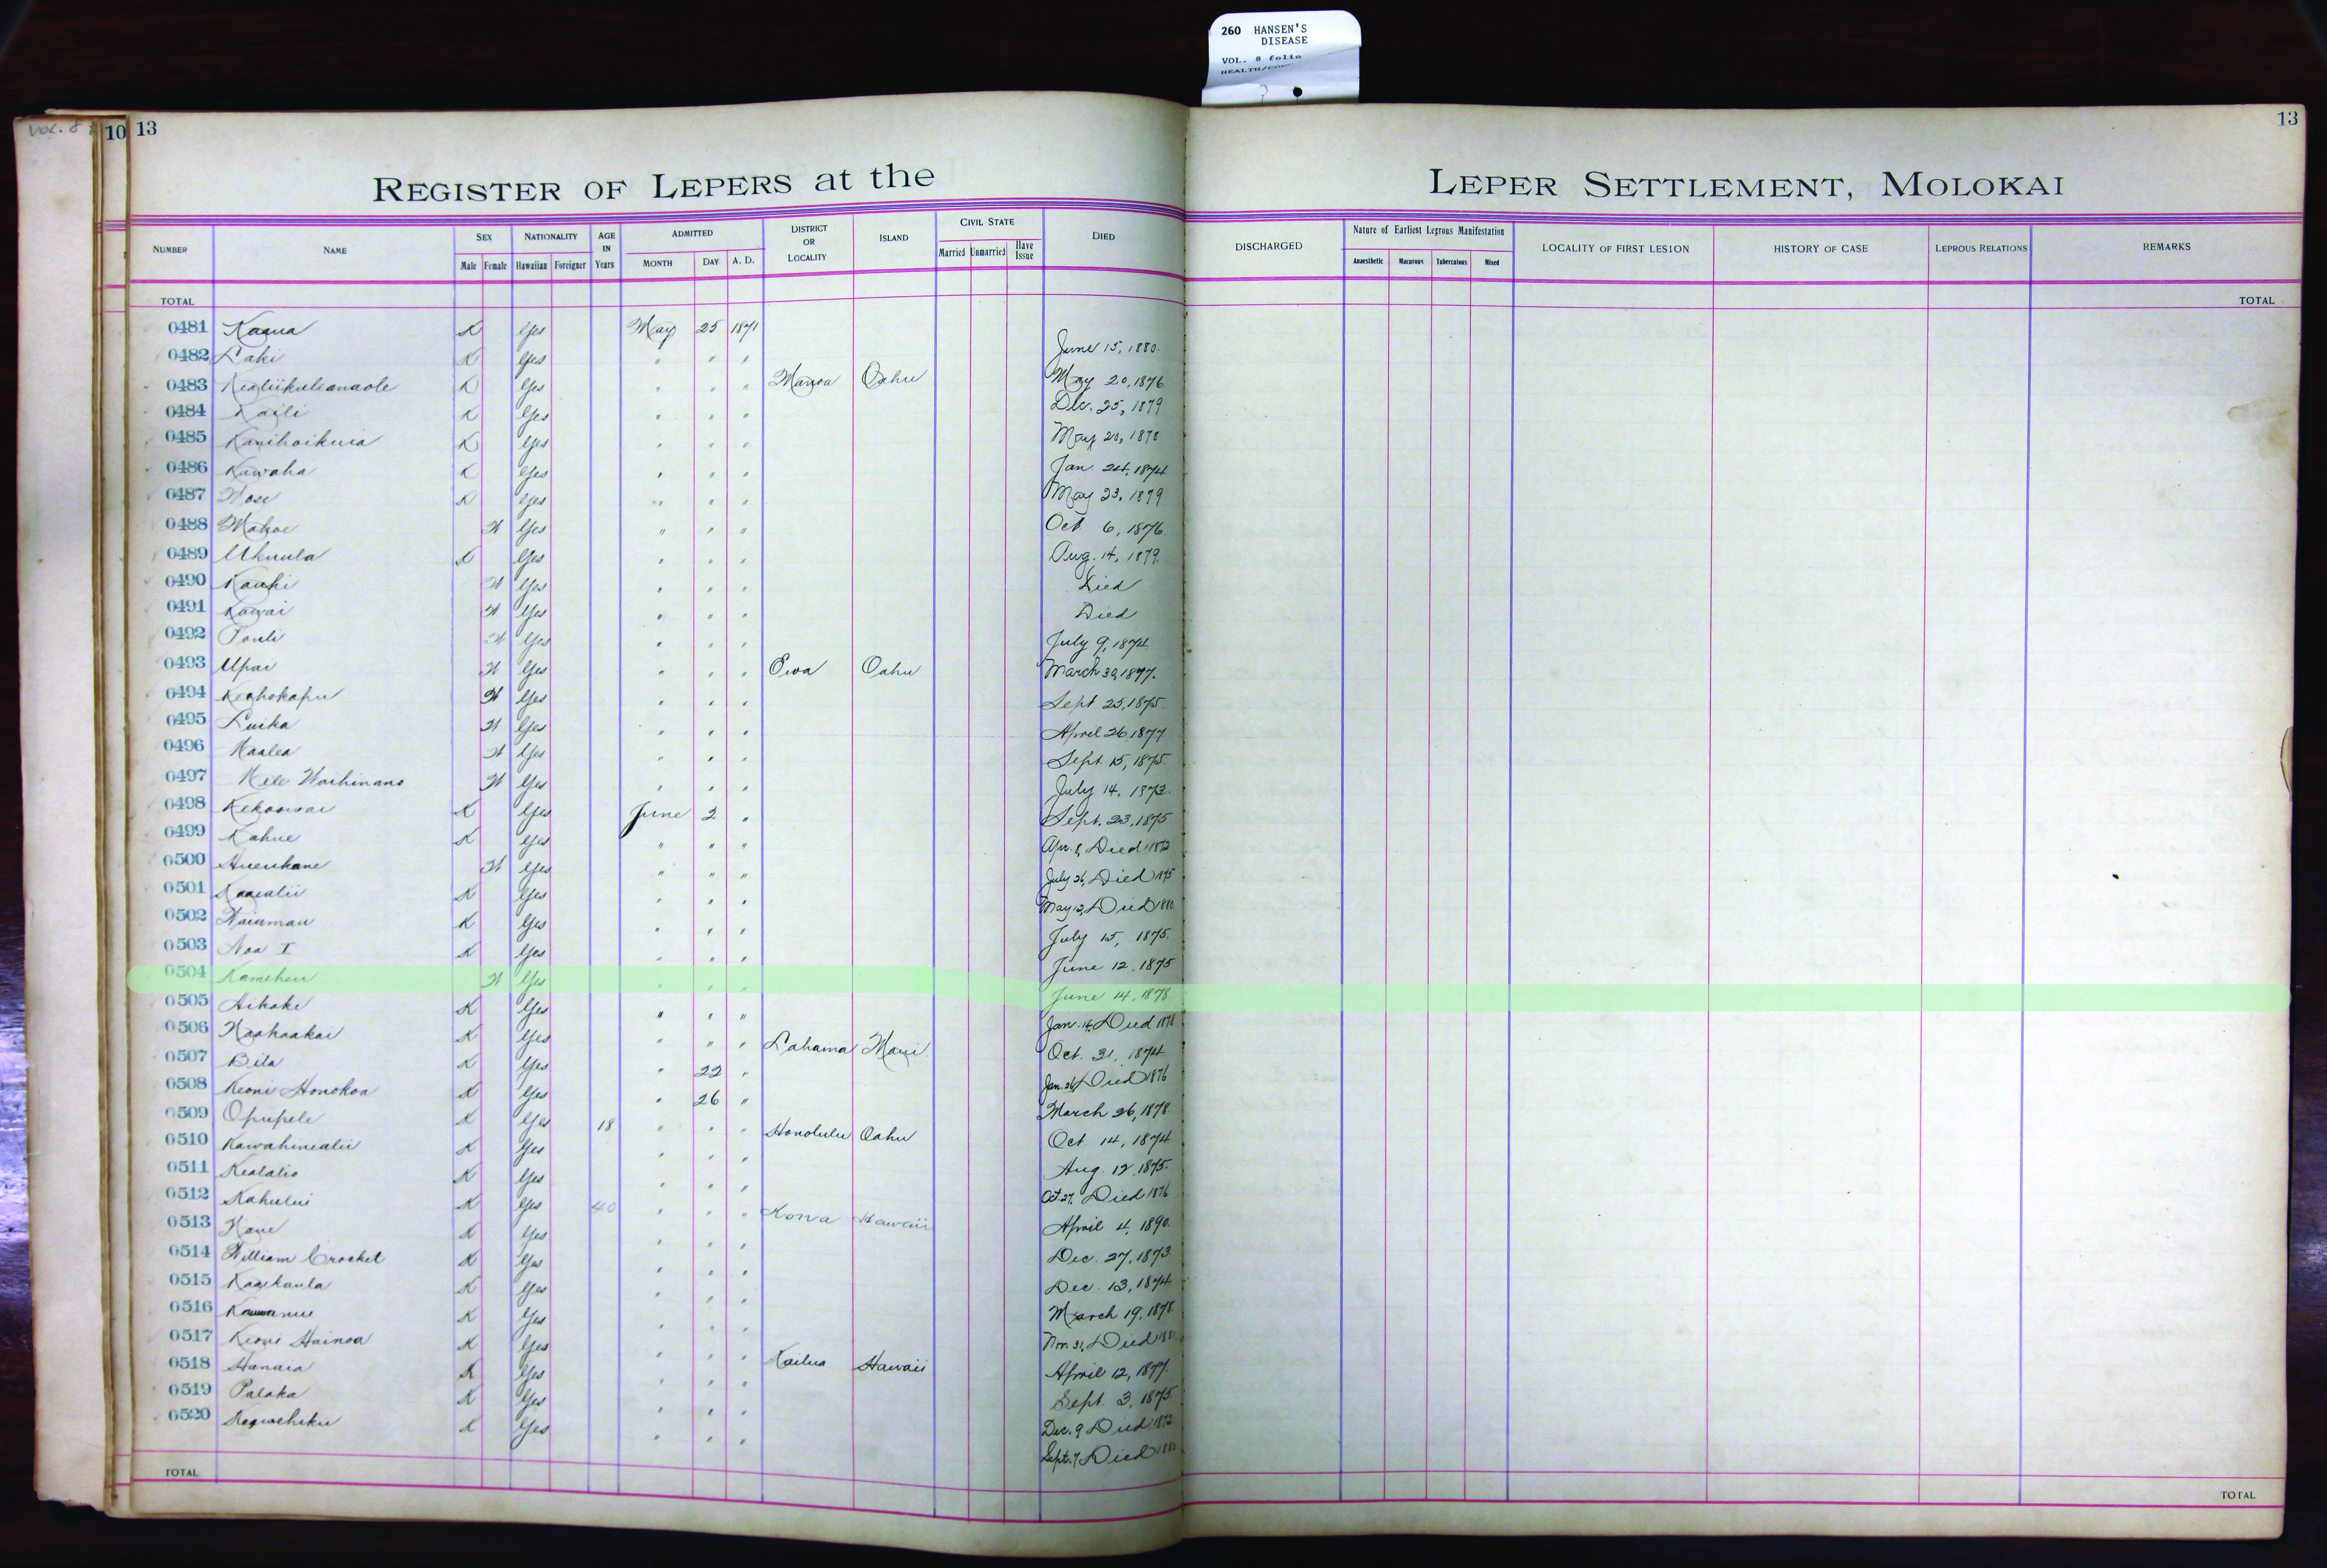 260 HANSEN'S
DISEASE
VOL. 8 folio
VOL. 8
10 13
13
REGISTER OF LEPERS at the LEPER SETTLEMENT, MOLOKAI
NUMBER NAME SEX Male Female NATIONALITY Hawaiian Foreigner AGE IN Years ADMITTED MONTH DAY A. D. DISTRICT OR LOCALITY ISLAND CIVIL STATE Married Unmarried Have Issue DIED DISCHARGED Nature of Earliest Leprous Manifestation Anaesthetic Macurous Tuberculous Mixed LOCALITY OF FIRST LESION HISTORY OF CASE LEPROUS RELATIONS REMARKS
TOTAL TOTAL
0481 Kaaua K Yes May 25 1871 June 15, 1880.
0482 Laki K Yes " " " May 20, 1876
0483 Kealiikuleanaole K Yes " " " Manoa Oahu Dec. 25, 1879
0484 Kaili K Yes " " " May 20, 1878
0485 Kanihoikuia K Yes " " " Jan. 24, 1874
0486 Kawaha K Yes " " " May 23, 1879
0487 K Yes " " " Oct 6, 1876.
0488 Mahoe W Yes " " " Aug. 14, 1879.
0489 Ukuula K Yes " " " Died
0490 Kauhi W Yes " " " Died
0491 Kawai W Yes " " " July 9, 1874
0492 Pouli W Yes " " " March 30, 1877.
0493 Upai W Yes " " " Ewa Oahu Sept 25, 1875.
0494 Keohokapu W Yes " " " April 26 1877
0495 Luika W Yes " " " Sept. 15, 1875.
0496 Naalea W Yes " " " July 14, 1873.
0497 Mele Waihinano W Yes " " " Sept. 23, 1875
0498 Kekoowai K Yes June 2 " Apr. 8, Died 1872
0499 Kahue K Yes " " " July 26, Died 1875
0500 Hueukane W Yes " " " May 12, Died 1880
0501 K Yes " " " July 15, 1875.
0502 Naiamau K Yes " " " June 12, 1875
0503 Noa I K Yes " " " June 14, 1878
0504 Kameheu W Yes " " " Jan. 14, Died 1878
0505 Hikake K Yes " " " Oct. 31, 1874
0506 Naahaakai K Yes " " " Lahaina Maui Jan. 26, Died 1876
0507 Bila K Yes " 22 " March 26, 1878.
0508 Keoni Honokoa K Yes " 26 " Oct 14, 1874
0509 Opupele K Yes 18 " " " Honolulu Oahu Aug. 12, 1875.
0510 Kawahinealii K Yes " " " Oct. 27, Died 1876
0511 Kealalio K Yes " " " April 4, 1890.
0512 Kahului K Yes 40 " " " Kona Hawaii Dec. 27, 1873
0513 K Yes " " " Dec. 13, 1874
0514 William Crocket K Yes " " " March 19, 1878
0515 Kaaikaula K Yes " " " Nov. 31, Died
0516 K Yes " " " April 12, 1877.
0517 Keoni Hainoa K Yes " " " Sept. 3, 1875
0518 Hanaia K Yes " " " Kailua Hawaii Dec. 9 Died 1872
0519 Palaka K Yes " " " Sept. 7, Died
0520 K Yes " " "
TOTAL TOTAL